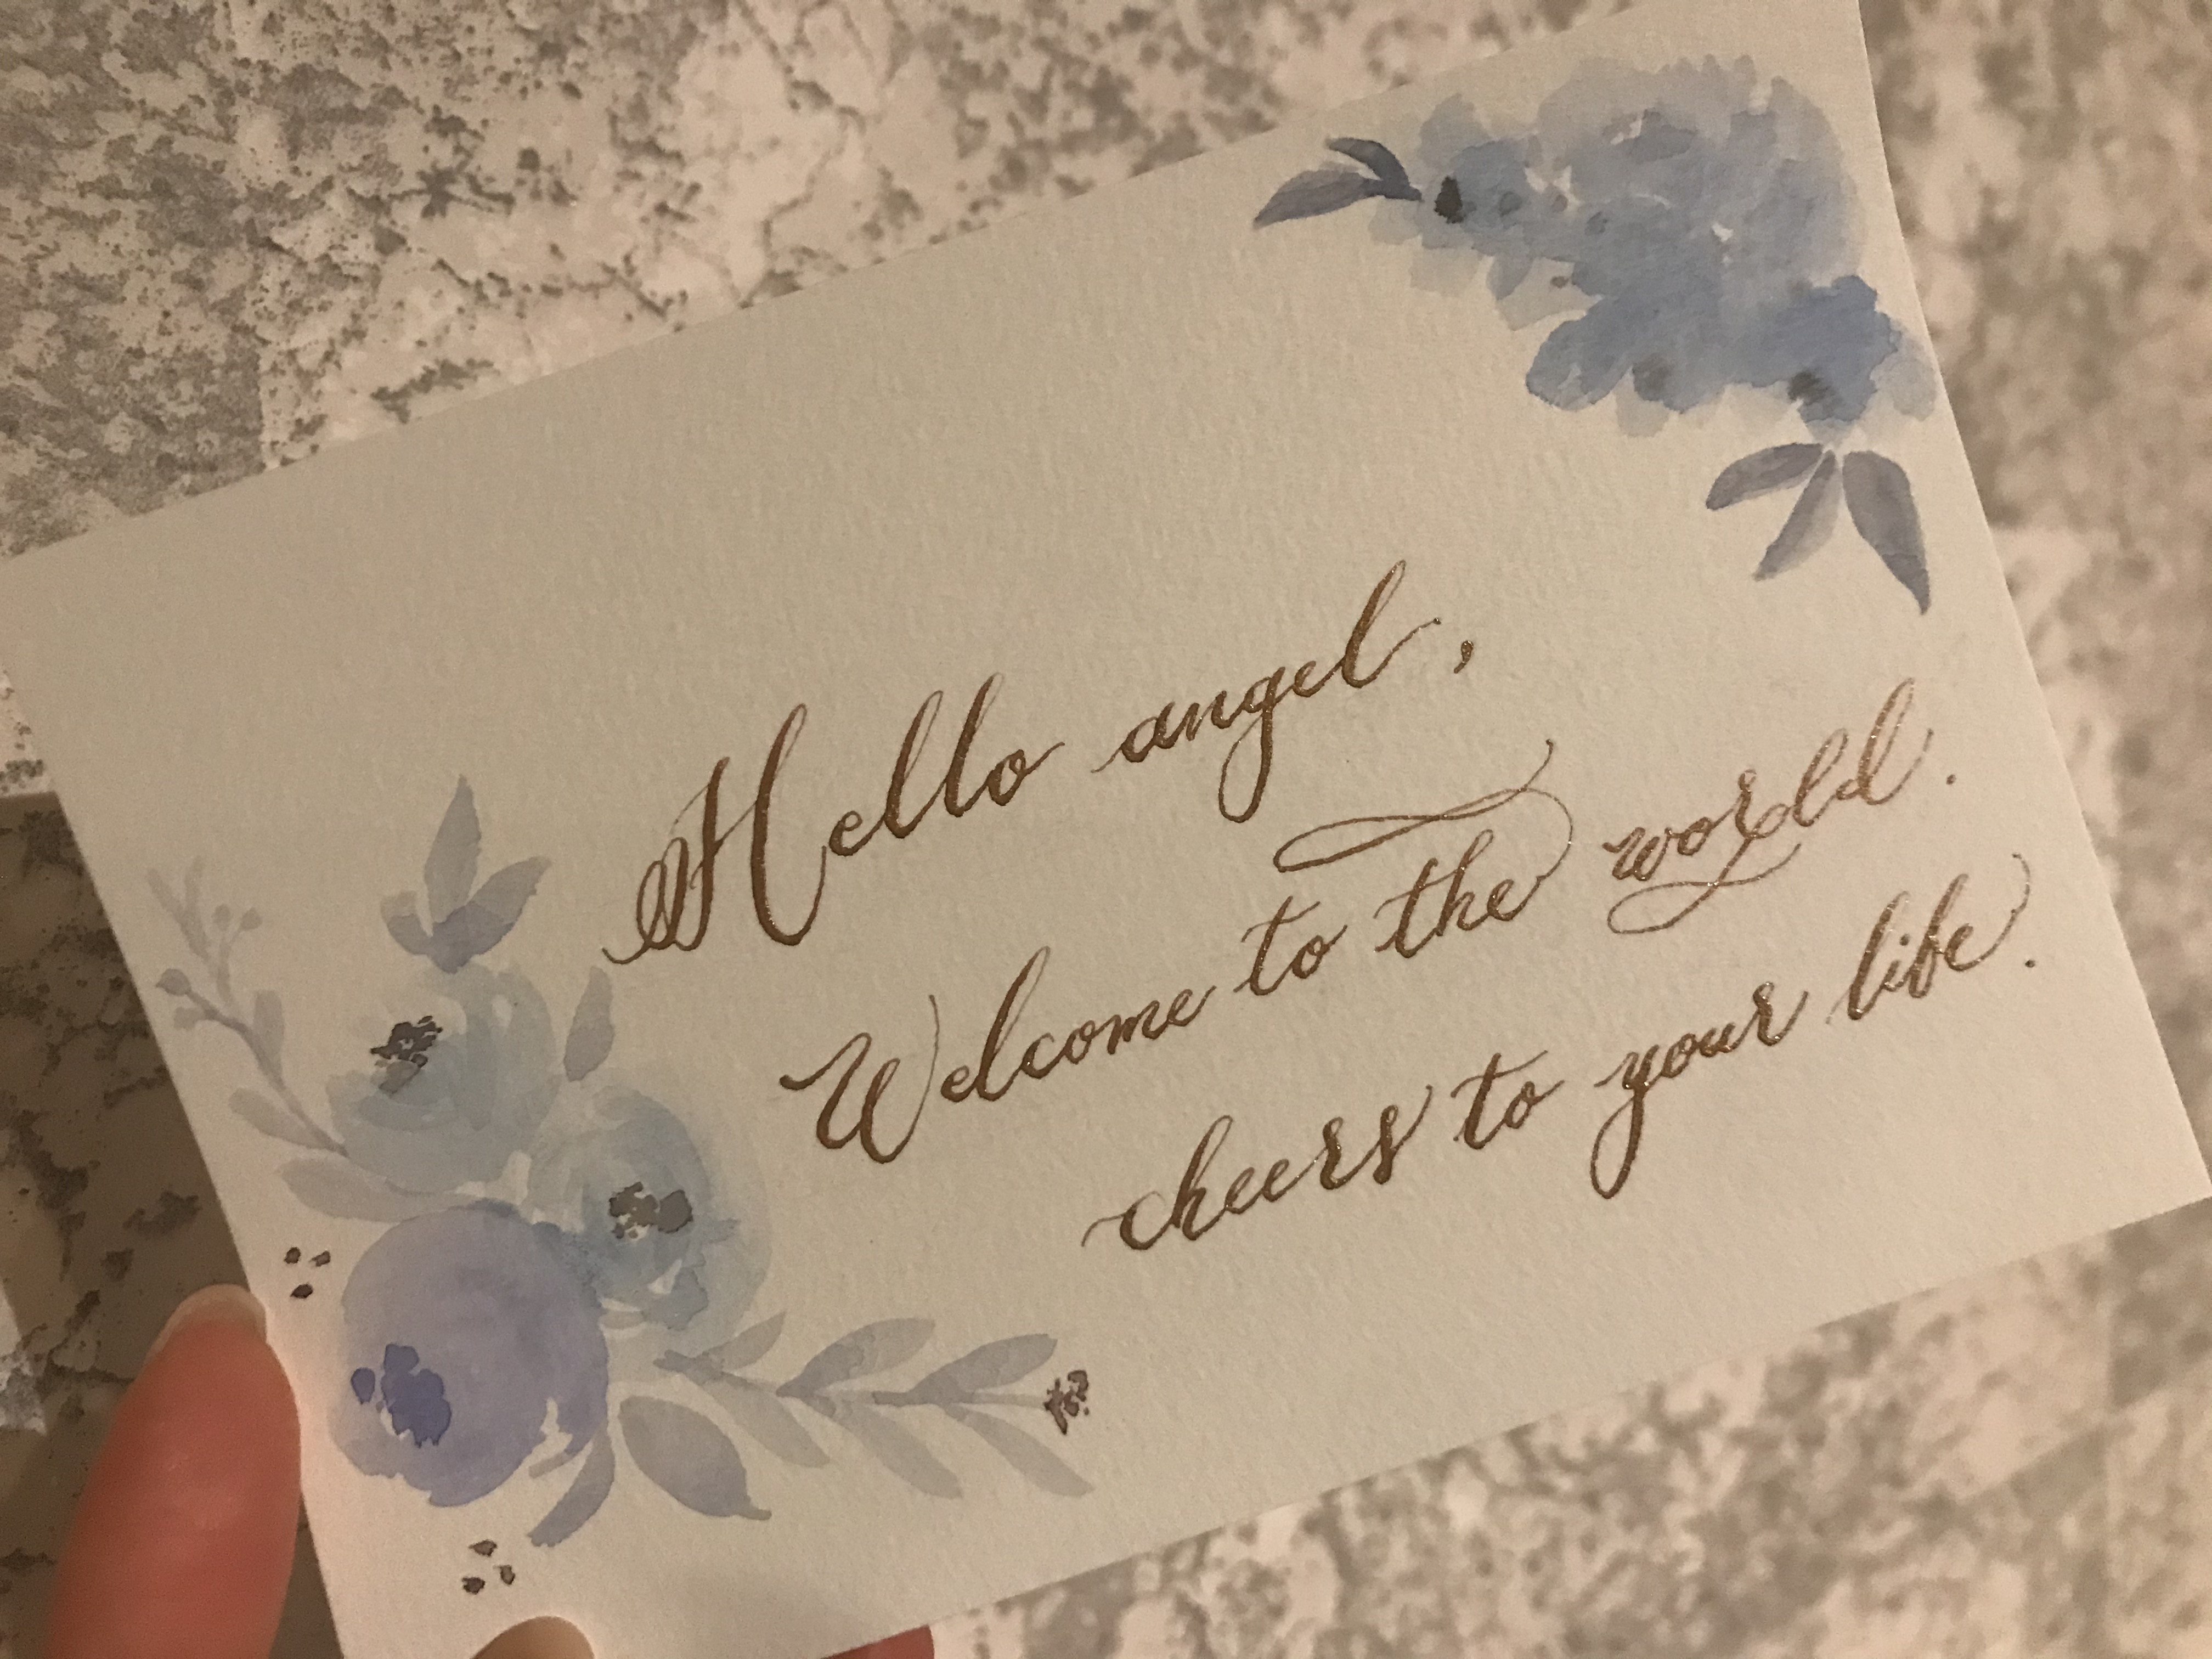 Hello angel,
Welcome to the world.
cheers to your life.